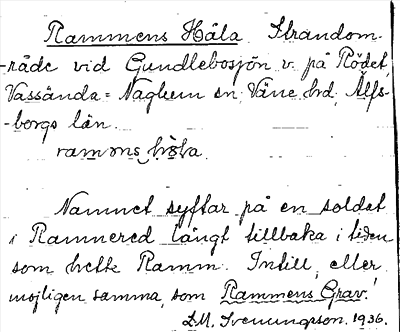 Rammens Håla Strandom-
-råde vid Gundlebosjön v. på Rödet,
Vassända-Naglum sn, Väne hd, Älfs-
-borgs län.
Namnet syftar på en soldat
i Ramnered långt tillbaka i tiden
som hette Ramm. Intill, eller
möjligen samma, som Rammens Grav.
1936.